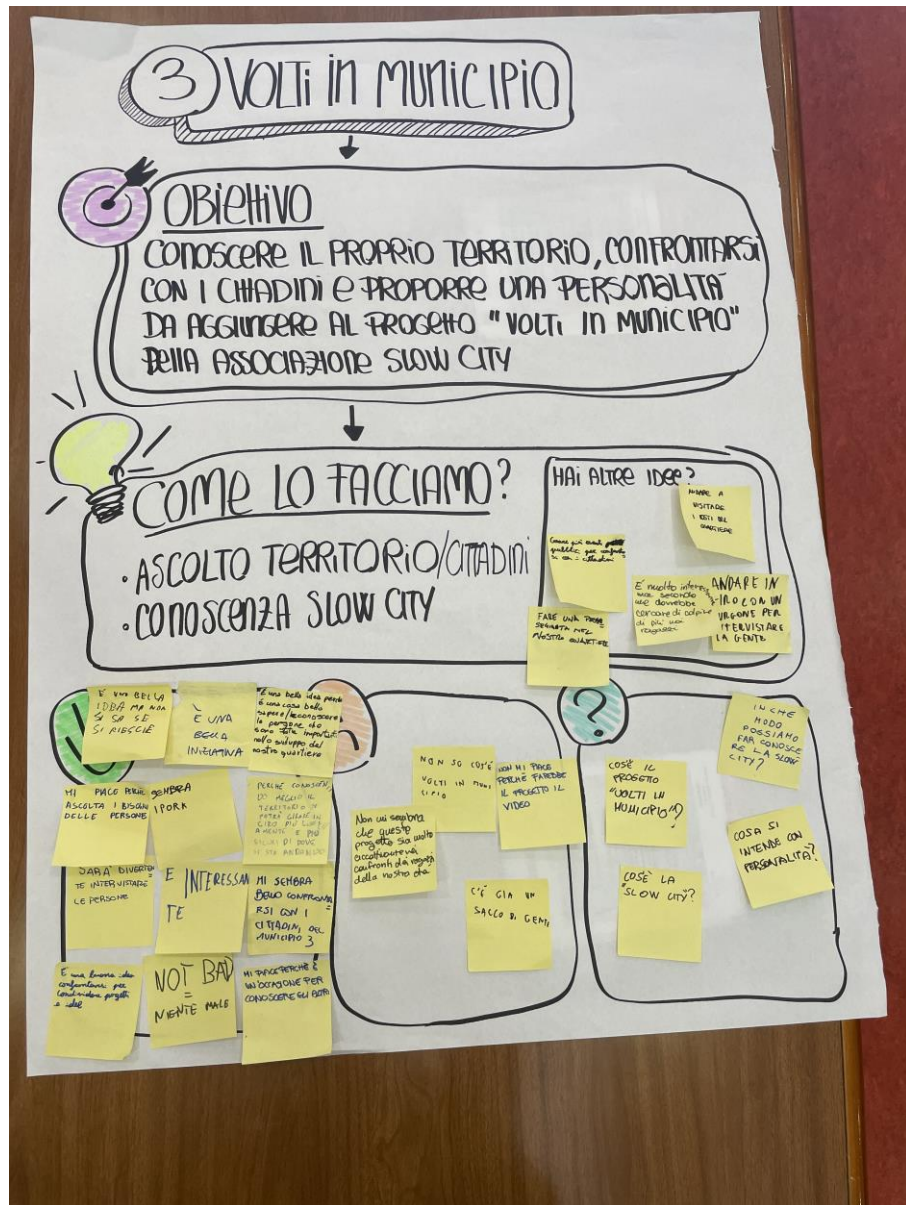 3 VOLTI IN MUNICIPIO
OBIETTIVO
CONOSCERE IL PROPRIO TERRITORIO, CONFRONTARSI
CON I CITTADINI E PROPORRE UNA PERSONALITÀ
DA AGGIUNGERE AL PROGETTO "VOLTI IN MUNICIPIO"
DELLA ASSOCIAZIONE SLOW CITY
COME LO FACCIAMO?
• ASCOLTO TERRITORIO/CITTADINI
• CONOSCENZA SLOW CITY
HAI ALTRE IDEE?
ANDARE A
VISITARE
I
QUARTIERE
Creare più eventi
pubblici per
si con i cittadini
È molto
ma secondo
me dovrebbe
cercare di colpire
di più noi
ragazzi
ANDARE IN
GIRO CON UN
FURGONE PER
INTERVISTARE
LA GENTE
FARE UNA
NEL
NOSTRO QUARTIERE
È UNA BELLA
IDEA MA NON
SI SA SE
SI RIESCIE
È UNA
BELLA
INIZIATIVA
È una bella idea perché
è una cosa bella
sapere/riconoscere
le persone che
sono state importanti
nello sviluppo del
nostro quartiere
MI PIACE PERCHÈ
ASCOLTA I BISOGNI
DELLE PERSONE
SEMBRA
PERCHÉ CONOSCEN
DO MEGLIO IL
TERRITORIO SI
POTRÀ GIRARE IN
GIRO PIÙ
AMENTE E PIÙ
SICURI DI DOVE
SI STA ANDANDO
SARÀ DIVERTEN
TE INTERVISTARE
LE PERSONE
E INTERESSAN
TE
MI SEMBRA
BELLO CONFRONTA
RSI CON I
CITTADINI DEL
MUNICIPIO 3
È una buona idea
confrontarsi per
condividere progetti
e idee
NOT BAD
=
NIENTE MALE
MI PIACE PERCHÈ È
UN'OCCASIONE PER
CONOSCERE GLI ALTRI
NON SO COS'È
VOLTI IN MUNI
CIPIO
NON MI PIACE
PERCHÈ FAREBBE
IL PROGETTO IL
VIDEO
Non mi sembra
che questo
progetto sia molto
accattivante nei
confronti dei ragazzi
della nostra età
C'È GIÀ UN
SACCO DI GENTE
?
COS'È IL
PROGETTO
"VOLTI IN
MUNICIPIO"?
IN CHE
MODO
POSSIAMO
FAR CONOSCE
RE LA SLOW
CITY?
COS'È LA
"SLOW CITY"?
COSA SI
INTENDE CON
PERSONALITÀ?